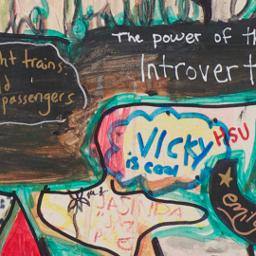 ht trains.
d
passengers
The power of th
Introvert
VICKY
is cool
HSU
JASINDA
emily